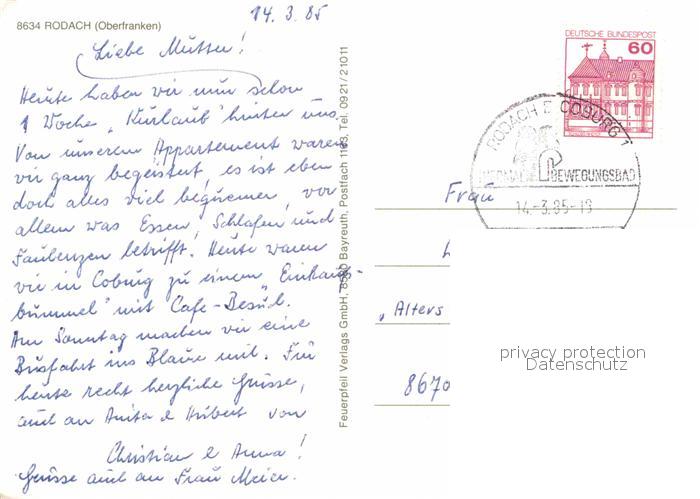 14.3.85
8634 RODACH (Oberfranken)
Liebe Mutter!
Heute haben wir nun schon
1 Woche „Kurlaub" hinter uns.
Von unserem Appartement waren
wir ganz begeistert, es ist eben
doch alles viel bequemer, vor
allem was Essen, Schlafen und
Faulenzen betrifft. Heute waren
wir in Coburg zu einem „Einkaufs-
bummel" mit Cafe-Besuch.
Am Sonntag machen wir eine
Busfahrt ins Blaue mit. Für
heute recht herzliche Grüsse,
auch an Anita & Hubert von
Christian & Anna!
Grüsse auch an Frau Meier.
Feuerpfeil Verlags GmbH, 8580 Bayreuth, Postfach 1163, Tel. 0921/21011
DEUTSCHE BUNDESPOST
60
RODACH B COBURG 1
THERMAL BEWEGUNGSBAD
14.-3.85-19
Frau
„Alters
8670
privacy protection
Datenschutz